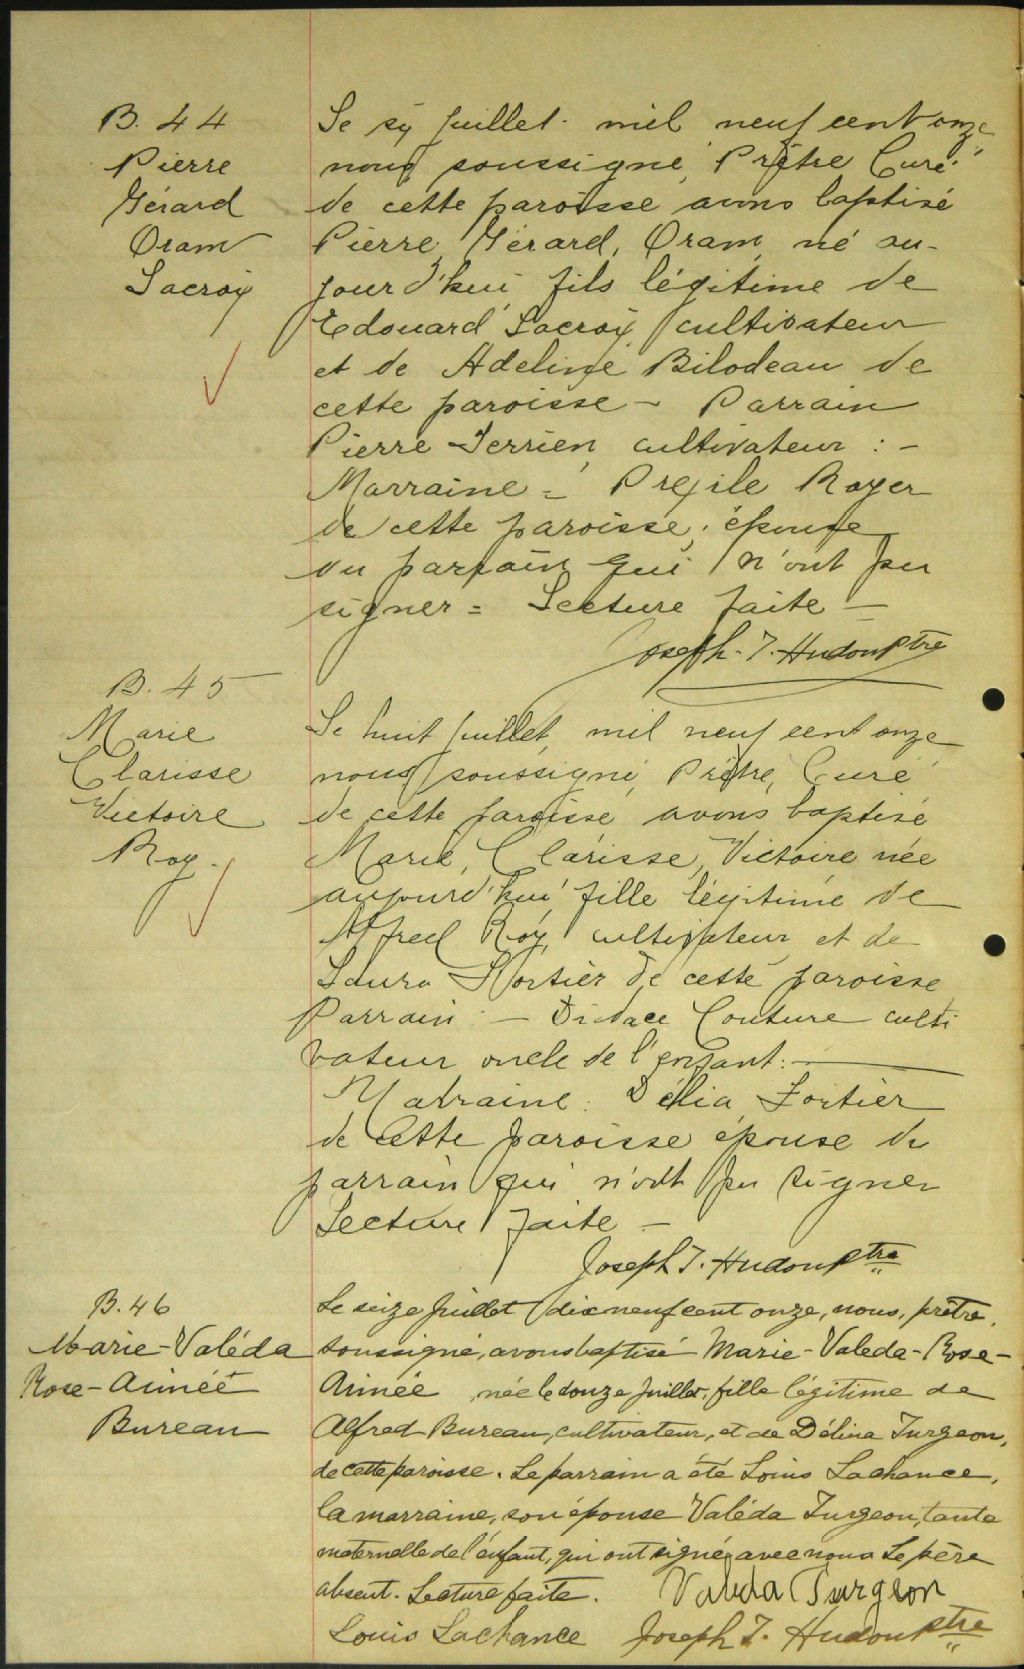 B. 44
Pierre
Gérard
Oram
Lacroix
Le six juillet mil neuf cent onze
nous soussigné, Prêtre Curé
de cette paroisse avons baptisé
Pierre, Gérard, Oram, né au-
jourd'hui fils légitime de
Edouard Lacroix, cultivateur
et de Adeline Bilodeau de
cette paroisse - Parrain
Pierre Terrien, cultivateur : -
Marraine = Royer
de cette paroisse, épouse
du parrain qui n'ont pu
signer = Lecture faite -
Joseph. J. Hudon Ptre
B. 45
Marie
Clarisse
Victoire
Roy.
Le huit juillet, mil neuf cent onze
nous soussigné, Prêtre, Curé
de cette paroisse avons baptisé
Marie, Clarisse, Victoire née
aujourd'hui, fille légitime de
Alfred Roy, cultivateur et de
Laura Fortier de cette paroisse
Parrain : - Didace Couture culti
vateur oncle de l'enfant : -
Marraine : Délia Fortier
de cette paroisse épouse du
parrain qui n'ont pu signer
Lecture faite -
Joseph J. Hudon Ptre
B. 46
Marie-Valéda
Rose-Aimée
Bureau
Le seize juillet dix neuf cent onze, nous, prêtre,
soussigné, avons baptisé Marie-Valeda-Rose-
Aimée née le douze juillet, fille légitime de
Alfred Bureau, cultivateur, et de Délina Turgeon,
de cette paroisse. Le parrain a été Louis Lachance,
la marraine, son épouse Valéda Turgeon, tante
maternelle de l'enfant, qui ont signé avec nous. Le père
absent. Lecture faite. Valeda Turgeon
Louis Lachance Joseph J. Hudon Ptre